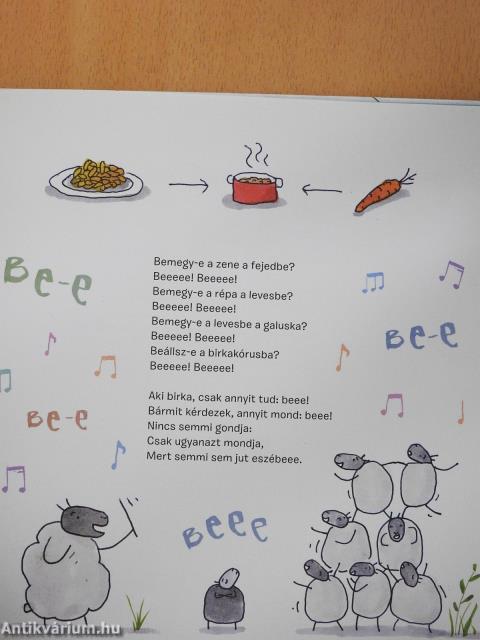 Be-e
Bemegy-e a zene a fejedbe?
Beeeee! Beeeee!
Bemegy-e a répa a levesbe?
Beeeee! Beeeee!
Bemegy-e a levesbe a galuska?
Beeeee! Beeeee!
Beállsz-e a birkakórusba?
Beeeee! Beeeee!
Be-e
Be-e
Aki birka, csak annyit tud: beee!
Bármit kérdezek, annyit mond: beee!
Nincs semmi gondja:
Csak ugyanazt mondja,
Mert semmi sem jut eszébeee.
Beee
Antikvárium.hu